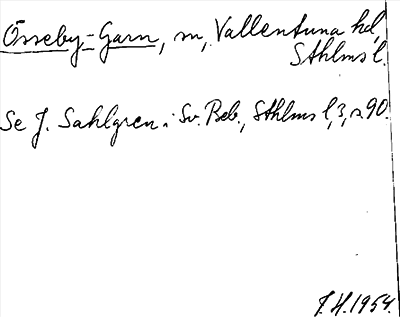 Össeby-Garn, sn, Vallentuna hd,
Sthlms l.
Se J. Sahlgren i Sv. Beb., Sthlms l, 3, s. 90.
J.H. 1954.